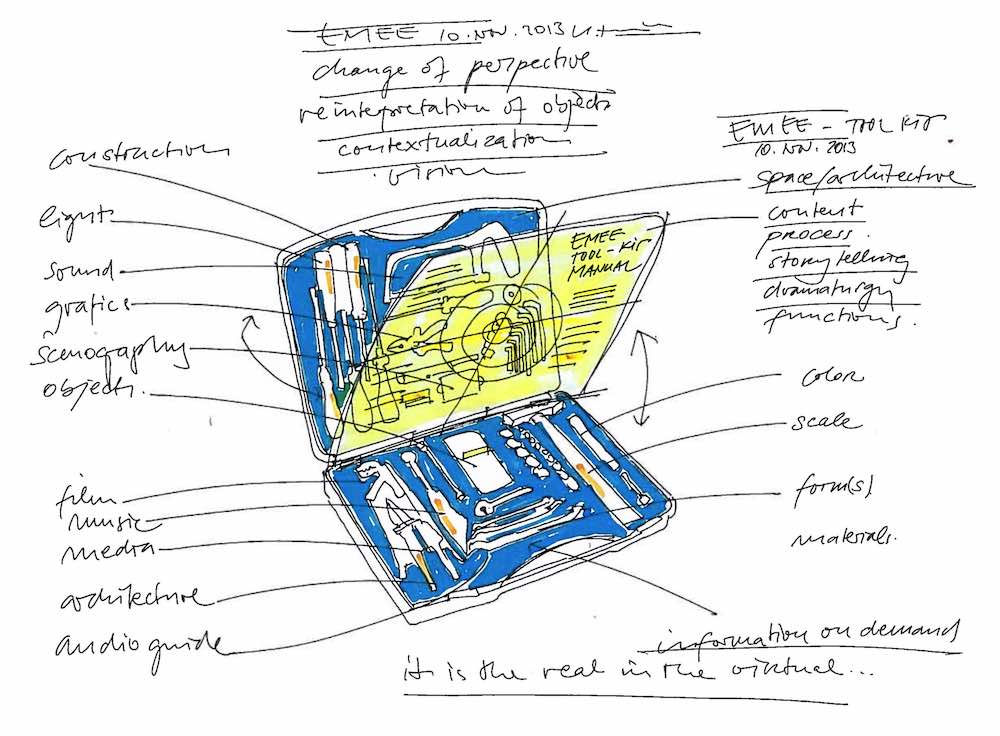 EMEE 10.NOV.2013
change of perspective
reinterpretation of objects
contextualization
vision
EMEE - TOOL KIT
10. NOV. 2013
space/architecture
content
process.
storytelling
dramaturgy
functions.
construction
light
sound
grafics
scenography
objects.
EMEE
TOOL-KIT
MANUAL
color
scale
form(s)
materials.
film
music
media
architecture
audioguide
information on demand
it is the real in the virtual...